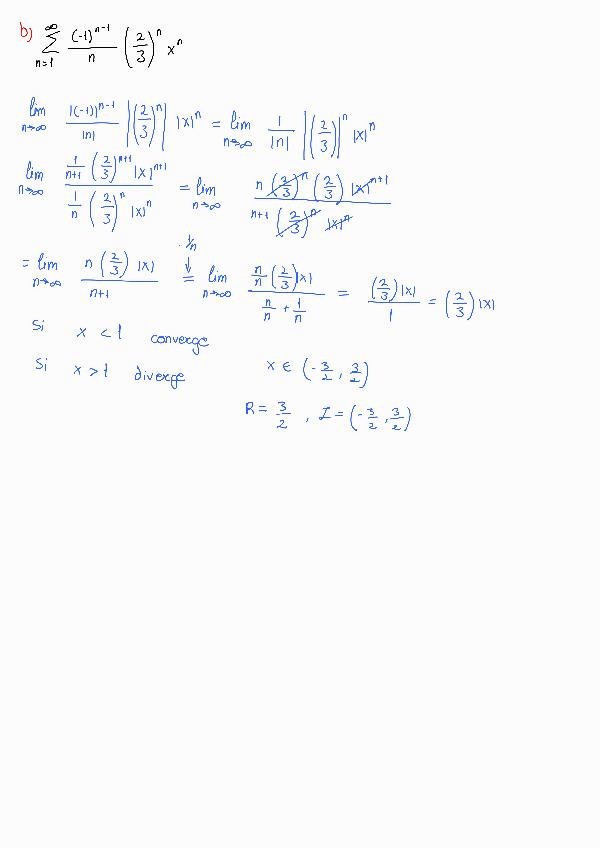 b) ∞ Σ n=1 (-1)^(n-1)/n (2/3)^n x^n
lim n→∞ |(-1)|^(n-1)/|n| |(2/3)^n| |x|^n = lim n→∞ 1/|n| |(2/3)|^n |x|^n
lim n→∞ (1/(n+1) (2/3)^(n+1) |x|^(n+1))/(1/n (2/3)^n |x|^n) = lim n→∞ (n (2/3)^n (2/3) |x|^(n+1))/(n+1 (2/3)^n |x|^n)
· 1/n
↓
= lim n→∞ (n (2/3) |x|)/(n+1) = lim n→∞ (n/n (2/3) |x|)/(n/n + 1/n) = ((2/3) |x|)/1 = (2/3) |x|
Si x < 1 converge
Si x > 1 diverge x ∈ (-3/2, 3/2)
R = 3/2 , I = (-3/2, 3/2)